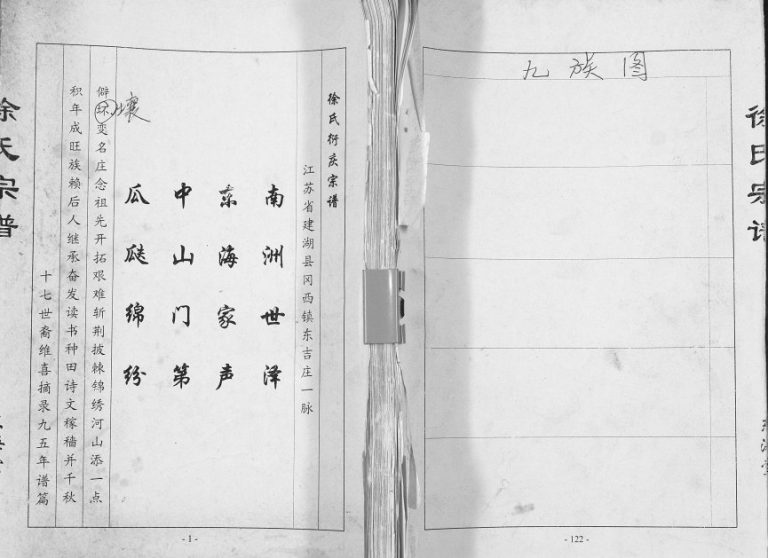 徐氏宗谱
徐氏衍庆宗谱
江苏省建湖县冈西镇东吉庄一脉
南洲世泽
东海家声
中山门第
瓜瓞绵纷
僻坏变名庄念祖先开拓艰难斩荆披棘锦绣河山添一点
壤
积年成旺族赖后人继承奋发读书种田诗文稼穑并千秋
十七世裔维喜摘录九五年谱篇
- 1 -
九族图
- 122 -
徐氏宗谱